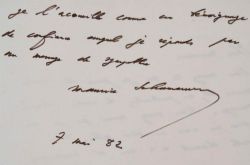 je l'accueille comme un témoignage
de confiance auquel je réponds par
un message de sympathie
Maurice Schumann
7 mai 82